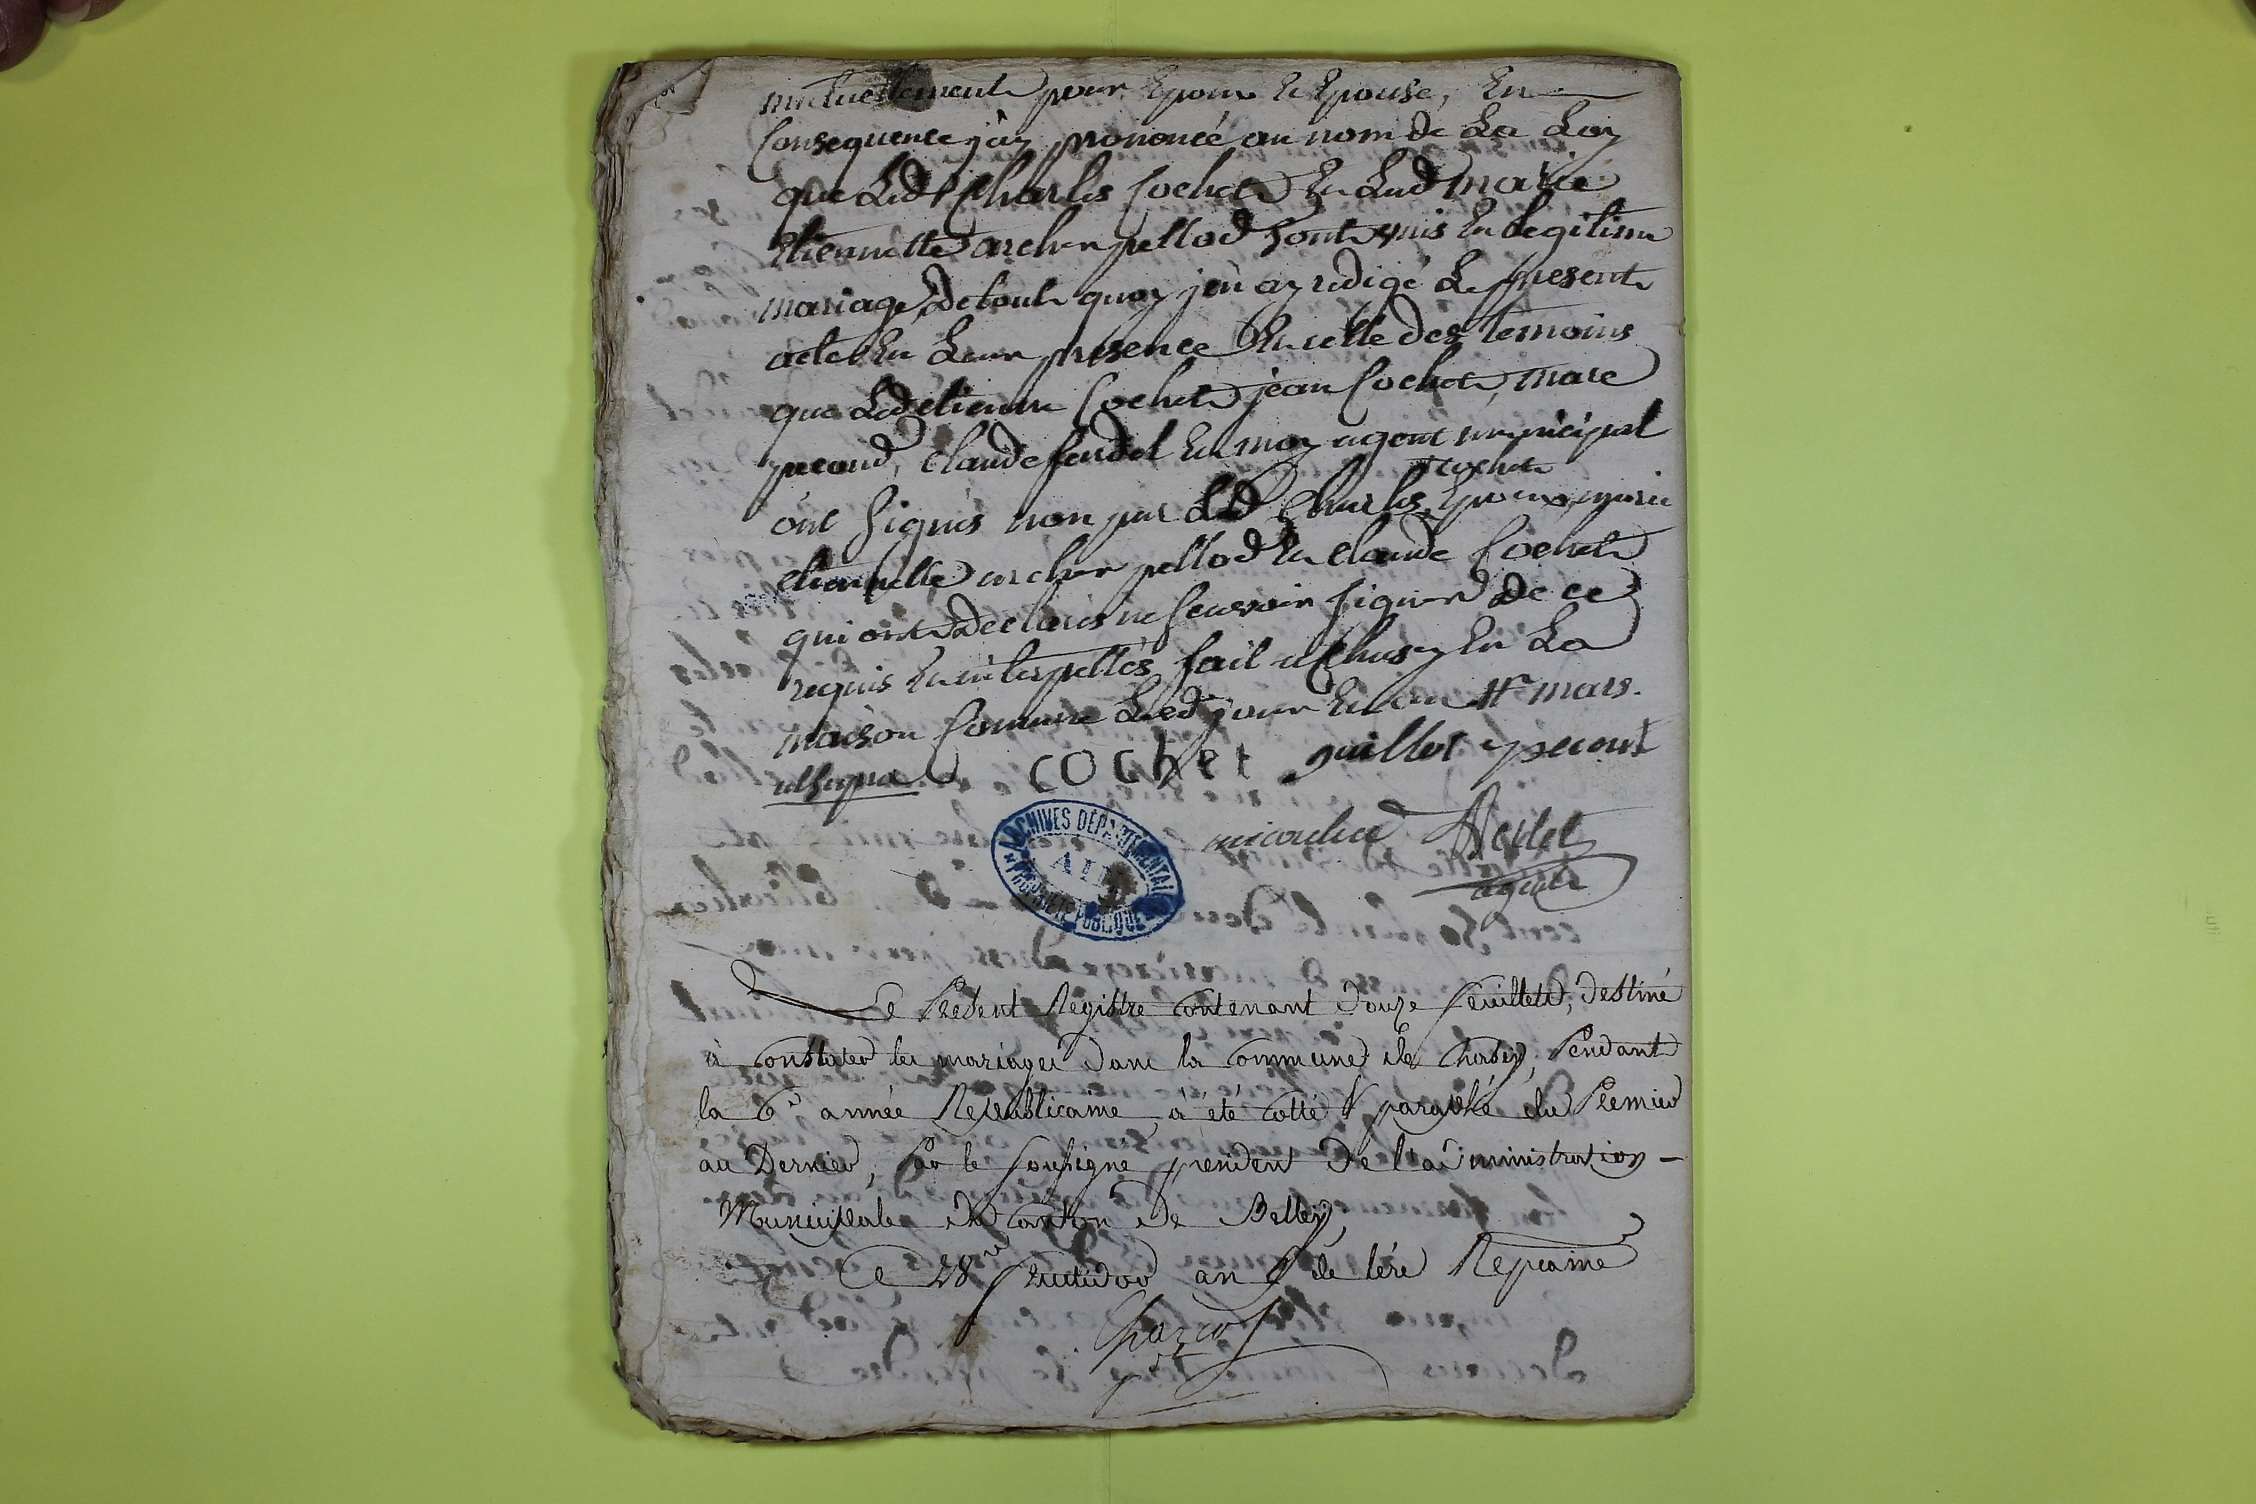 mutuellement pour Epoux Et Epouse, En
Consequence j'ay prononcé au nom de La Loy
que Led Charles Cochet Et Lad marie
Etiennette archer pellod sont unis En Legitime
mariage, de tout quoy j'en ay redigé Le present
acte En Leur presence Et celle des temoins
que Led etienne Cochet jean Cochet, marc
ypecond, Claude fendel Et moy agent municipal
cochet
ont signés non pas Led Charles Epoux, marie
etiennette archer pellod Et Claude Cochet
qui ont declarés ne scavoir signer de ce
requis Et interpellés, fait a Chasey En La
maison Commune Led jour Et an mars.
cochet guillot ypecont
agent
ARCHIVES DÉPARTEMENTALES
AIN
PROPRIÉTÉ PUBLIQUE
Le Présent Registre contenant douze feuillets, destiné
à constater les mariages dans la commune de Chasey, Pendant
la 6e année Republicaine, a été cotté & paraphé du Premier
au Dernier, par le soussigné president de l'administration
Municipale du canton de Belley,
Ce 28 fructidor an 5 de l'ére Repcaine